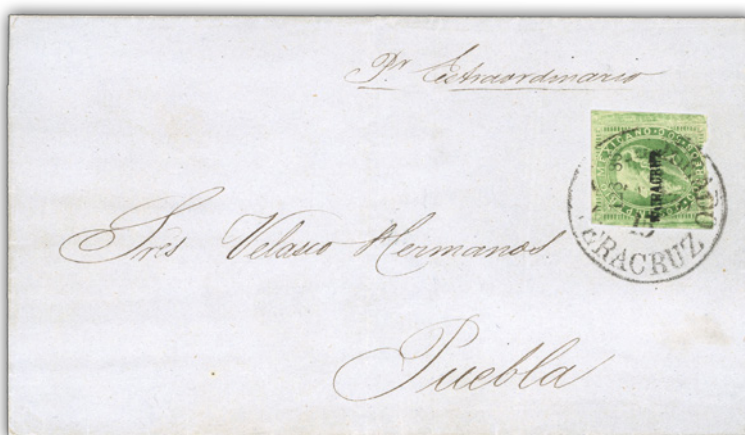 Pr Extraordinario
VERACRUZ
VERACRUZ
Sres Velasco Hermanos.
Puebla